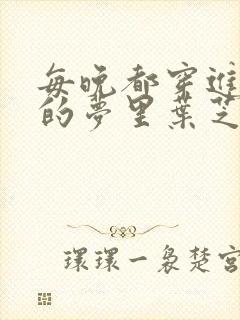 每晚都穿進
的夢里葉芝
環環一裊楚宮